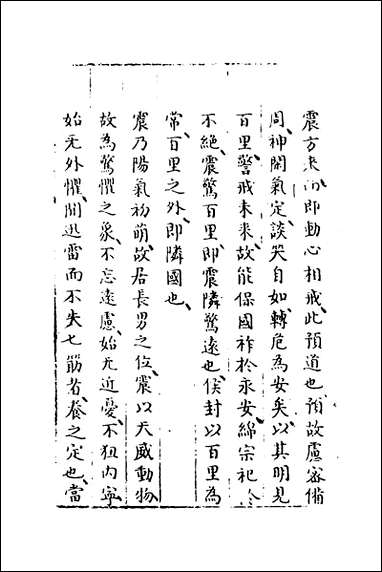 震方来而即動心相戒此預道也預故慮宻備
周神閑氣定談笑自如轉危為安矣以其明見
百里警戒未来故能保國祚於永安綿宗祀於
不絶震驚百里即震隣驚逺也侯封以百里為
常百里之外即隣國也
震乃陽氣初萌故居長男之位震以天威動物
故為驚懼之象不忘逺慮始无近憂不狃内寧
始无外懼聞迅雷而不失匕筯者養之定也當